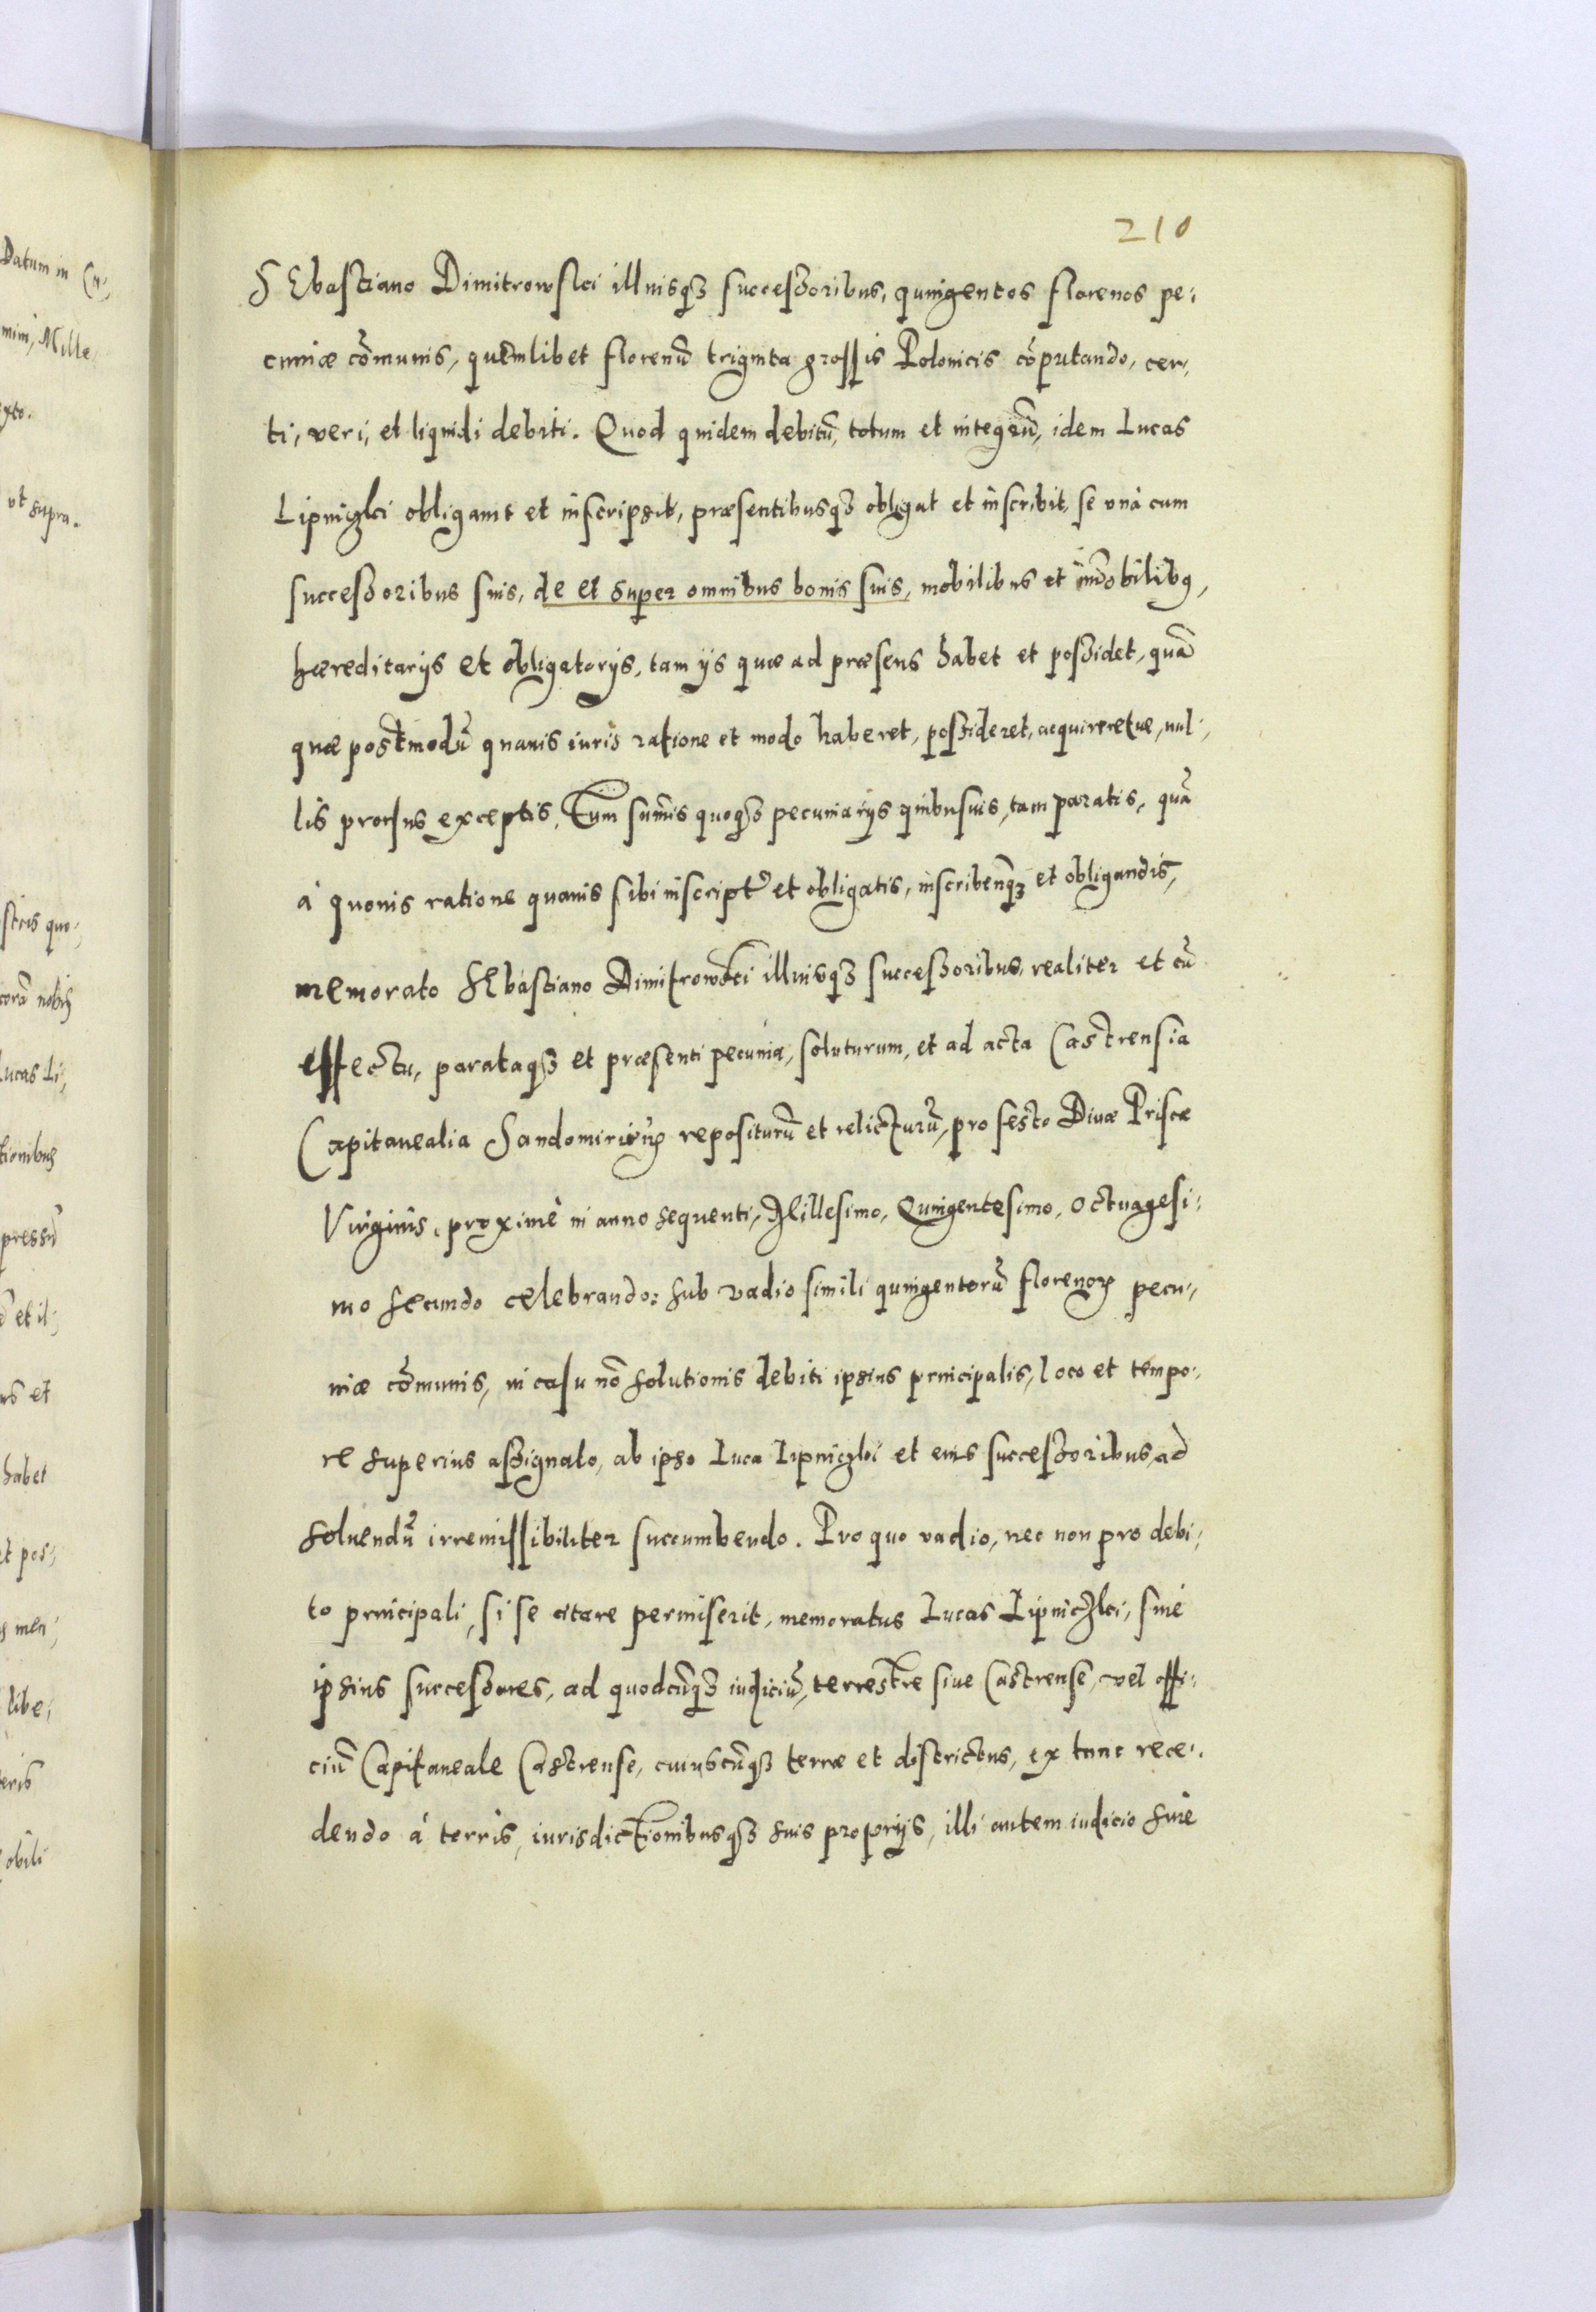 210
SEbastiano Dimitrowski illiusq3 successoribus, quingentos florenos pe,
cuniæ cōmunis, quēmlibet florenū triginta grossis Polonicis cōputando, cer,
ti, veri, et liquidi debiti. Quod quidem debitū, totum et integrū, idem Lucas
Lipniczki obligauit et inscripsit, præsentibusq3 obligat et inscribit, se vná cum
successoribus suis, de et super omnibus bonis suis, mobilibus et im̄obilibq,
hæreditarijs et obligatorijs, tam ijs quæ ad præsens habet et possidet, quā
quæ postmodū quauis iuris ratione et modo haberet, possideret, acquireretue, nul,
lis prorsus exceptis, Tum sum̄is quoq3 pecuniarijs quibusuis, tam paratis, quā
á quouis ratione quauis sibi inscript9 et obligatis, inscribenq3 et obligandis,
memorato SEbastiano Dimitrowski illiusq3 successoribus, realiter et cū
effectu, parataq3 et præsenti pecunia, soluturum, et ad acta Castrensia
Capitanealia Sandomirien̄ repositurū et relicturū, pro festo Diuæ Priscæ
Virginis, proximè in anno sequenti, Millesimo, Quingentesimo, Octuagesi,
mo secundo celebrando: sub vadio simili quingentorū florenoꝝ pecu,
niæ cōmunis, in casu nō solutionis debiti ipsius principalis, loco et tempo,
re superius assignato, ab ipso Luca Lipniczki et eius successoribus, ad
soluendū irremissibiliter succumbendo. Pro quo vadio, nec non pro debi,
to principali, si se citare permiserit, memoratus Lucas Lipniczki, siue
ipsius successores, ad quodcūq3 iudiciū, terrestre siue Castrense, vel offi,
ciū Capitaneale Castrense, cuiuscūq3 terræ et districtus, ex tunc rece,
dendo á terris, iurisdictionibusq3 suis proprijs, illi autem iudicio siue